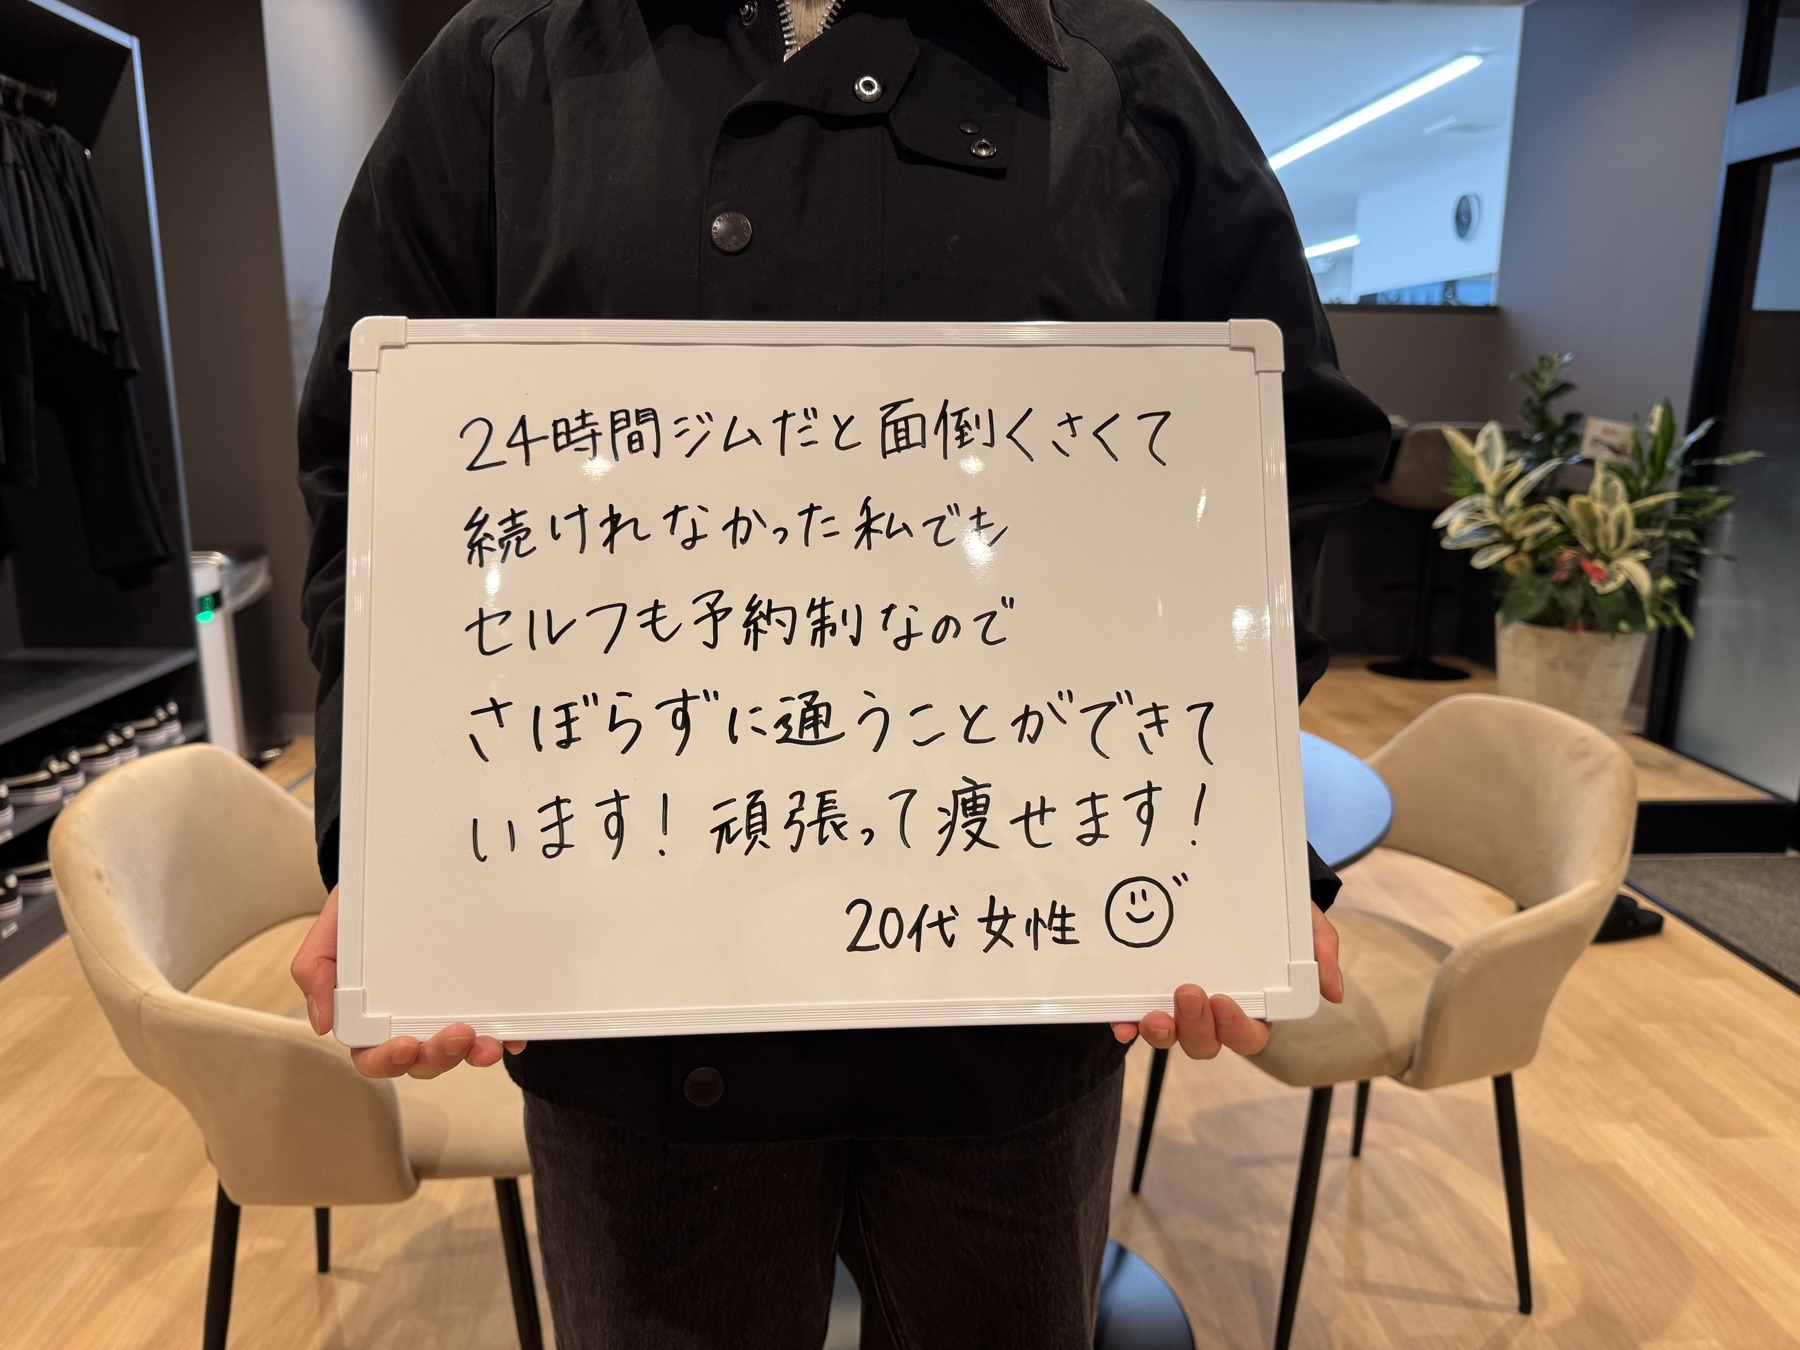 24時間ジムだと面倒くさくて
続けれなかった私でも
セルフも予約制なので
さぼらずに通うことができて
います！頑張って痩せます！
20代 女性